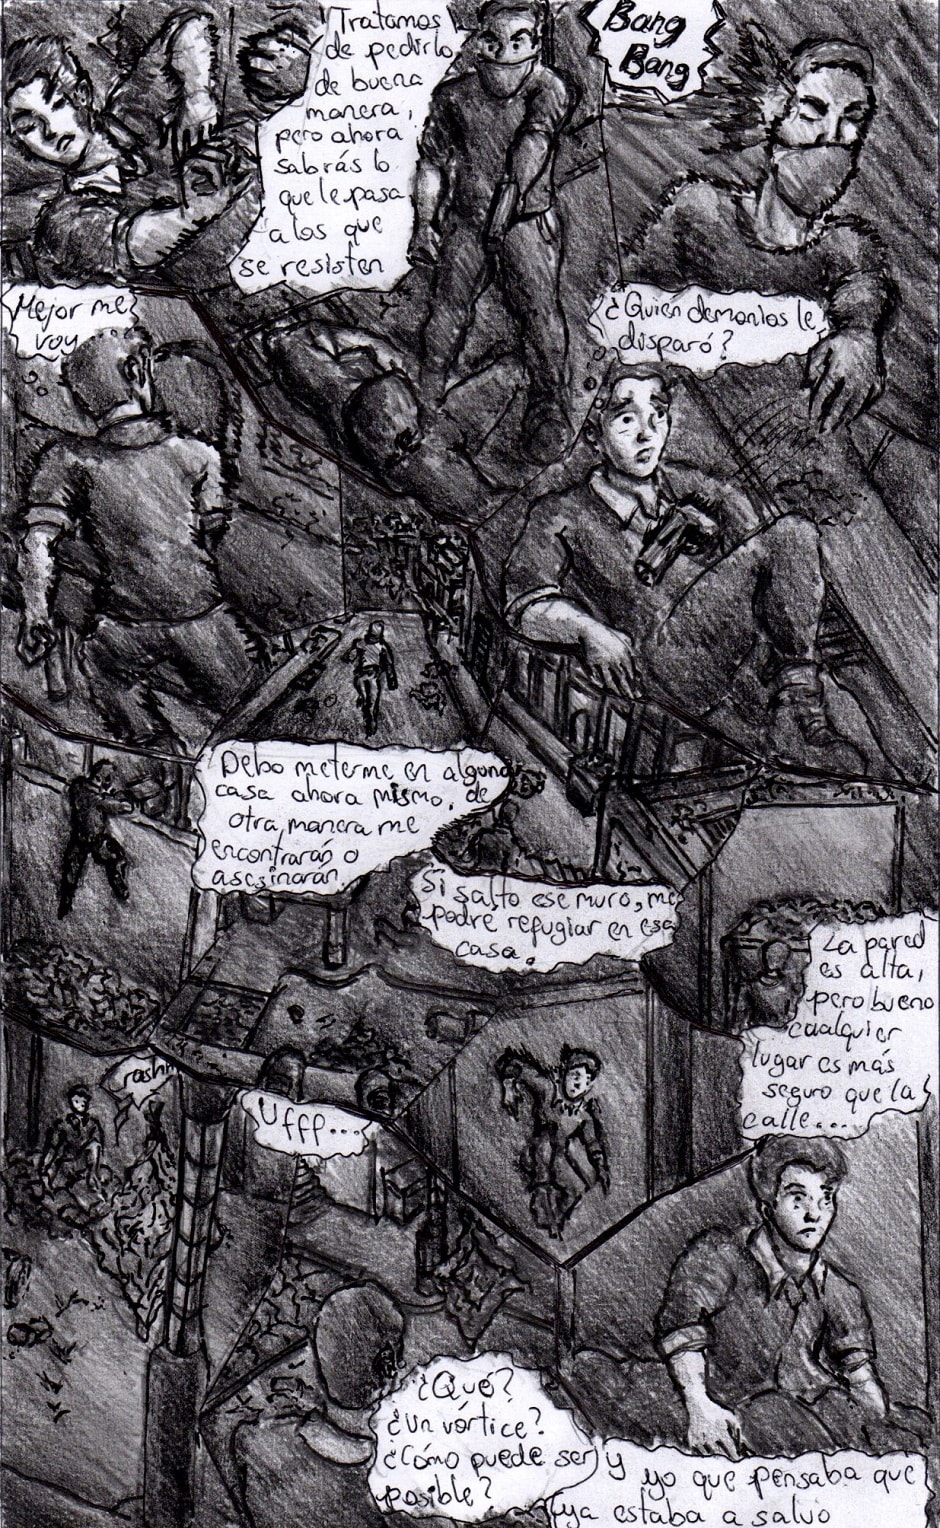 Tratamos
de pedirlo
de buena
manera,
pero ahora
sabrás lo
que le pasa
a los que
se resisten
Bang
Bang
¿Quien demonios le
disparó?
Mejor me
voy
Debo meterme en alguna
casa ahora mismo. de
otra manera me
encontrarán o
asesinarán.
Si salto ese muro, me
podre refugiar en esa
casa.
La pared
es alta,
pero bueno
cualquier
lugar es más
seguro que la
calle...
Ufff...
¿Qué?
¿Un vórtice?
¿Cómo puede ser
posible?
y yo que pensaba que
ya estaba a salvo